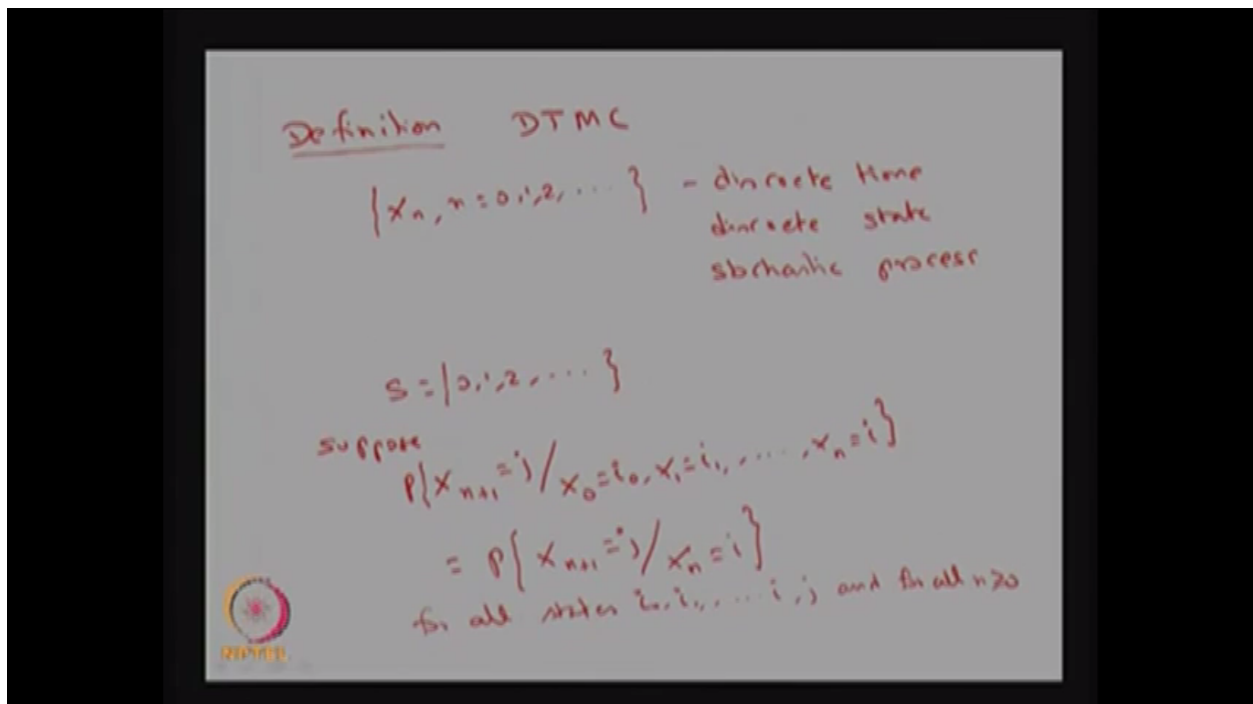 Definition DTMC
{Xn, n=0,1,2, ... } - discrete time
discrete state
stochastic process
S = {0,1,2, ... }
suppose
P{Xn+1 = j / X0 = i0, X1 = i1, ..., Xn = i}
= P{Xn+1 = j / Xn = i}
for all states i0, i1, ... i, j and for all n≥0
NPTEL